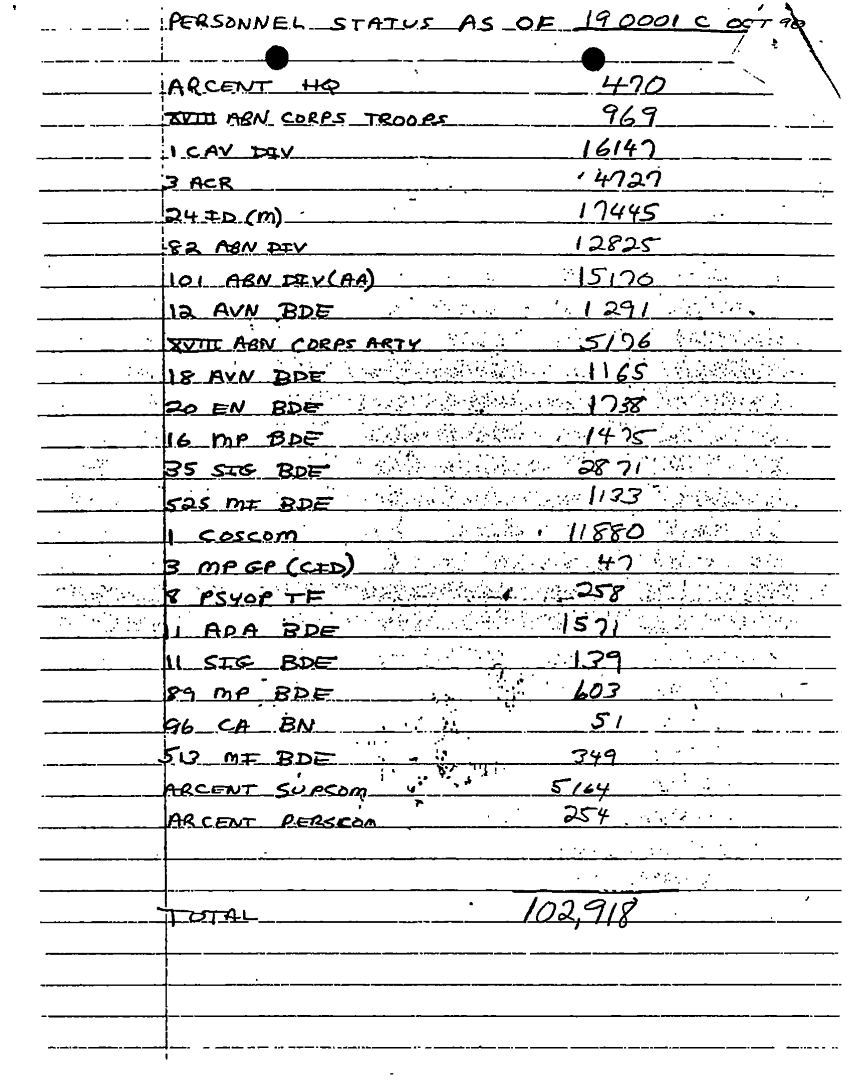 PERSONNEL STATUS AS OF 190001 C OCT 90
ARCENT HQ 470
XVIII ABN CORPS TROOPS 969
1 CAV DIV 16147
3 ACR 4727
24 ID (M) 17445
82 ABN DIV 12825
101 ABN DIV (AA) 15170
12 AVN BDE 1291
XVIII ABN CORPS ARTY 5176
18 AVN BDE 1165
20 EN BDE 1738
16 MP BDE 1475
35 SIG BDE 2871
525 MI BDE 1133
1 COSCOM 11880
3 MP GP (CID) 47
8 PSYOP TF 258
11 ADA BDE 1571
11 SIG BDE 139
89 MP BDE 603
96 CA BN 51
513 MI BDE 349
ARCENT SUPCOM 5164
ARCENT PERSCOM 254
TOTAL 102,918